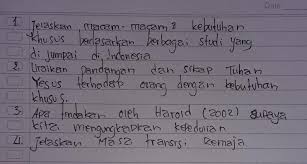 1. Jelaskan macam-macam2 kebutuhan
khusus berdasarkan berbagai studi yang
di jumpai di Indonesia
2. Uraikan pandangan dan sikap Tuhan
Yesus terhadap orang dengan kebutuhan
khusus.
3. Apa tindakan oleh Harold (2002) supaya
kita mengungkapkan kepedulian.
4. Jelaskan Masa transisi Remaja